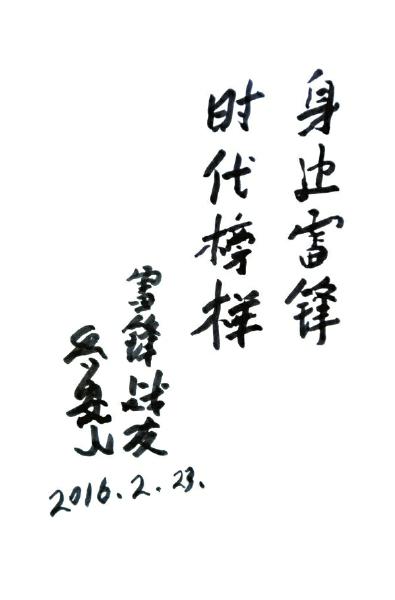 身边雷锋
时代榜样
雷锋战友
乔安山
2016.2.23.